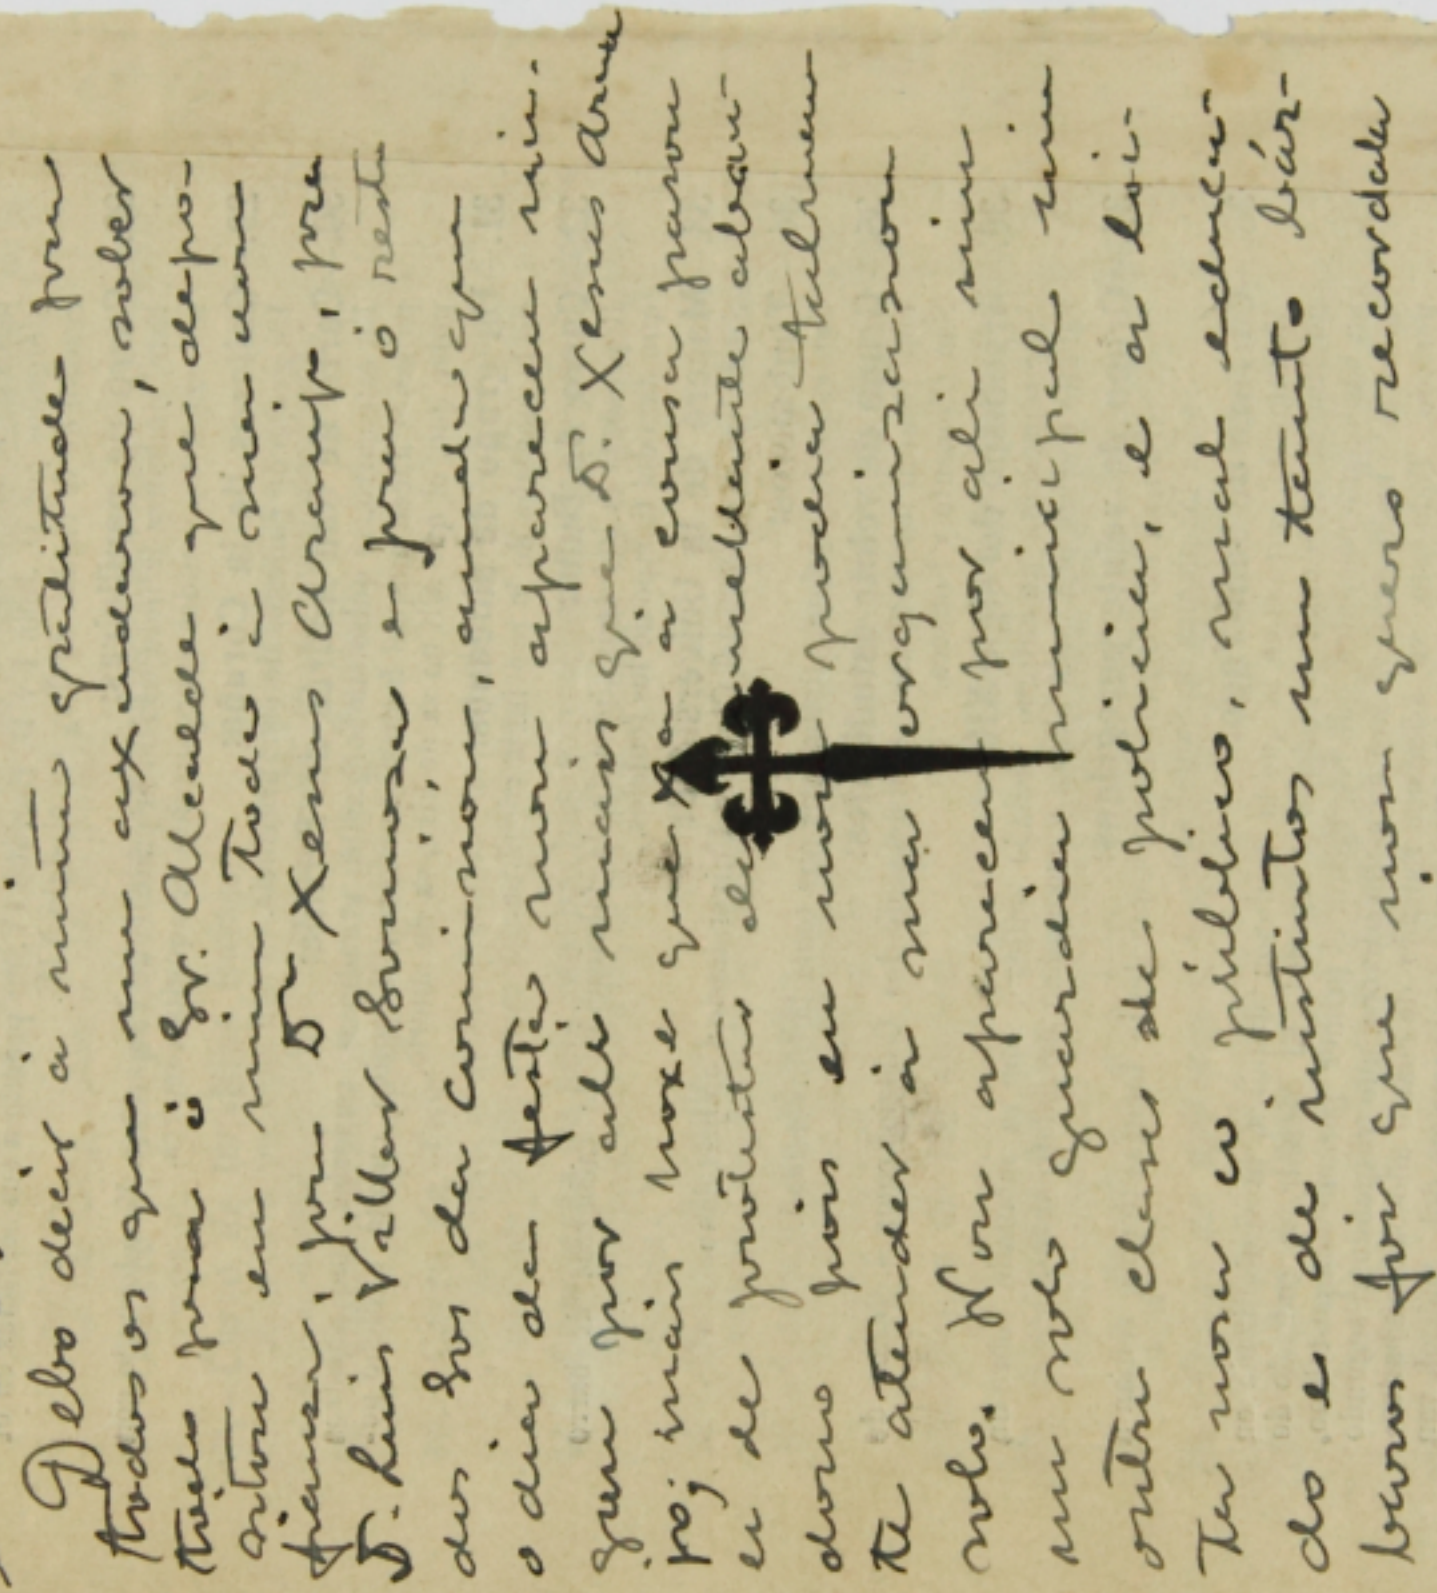 Debo decir a miña gratitude pra
todos os que me axudaron, sober
todo pra o Sr. Alcalde que depo-
sitou en min toda a súa con
fianza, pra D. Xesus Araujo, pra
D. Luis Villar Somoza e pra o resto
dos Sres da Comisión, aunda que
o dia da festa non apareceu nin-
guen por alí mais que D. Xesus Arau
jo; mais hoxe que xa a cousa pasou
ei de protestar da
dono pois eu non podia talmen
te atender a unha organizazon
solo. Non apareceu por alí nin
un solo guardia municipal nin
outra clase de policia, e a loi-
ta nosa co público, mal educa-
do e de instintos un tanto bár-
baros foi que non quero recordala